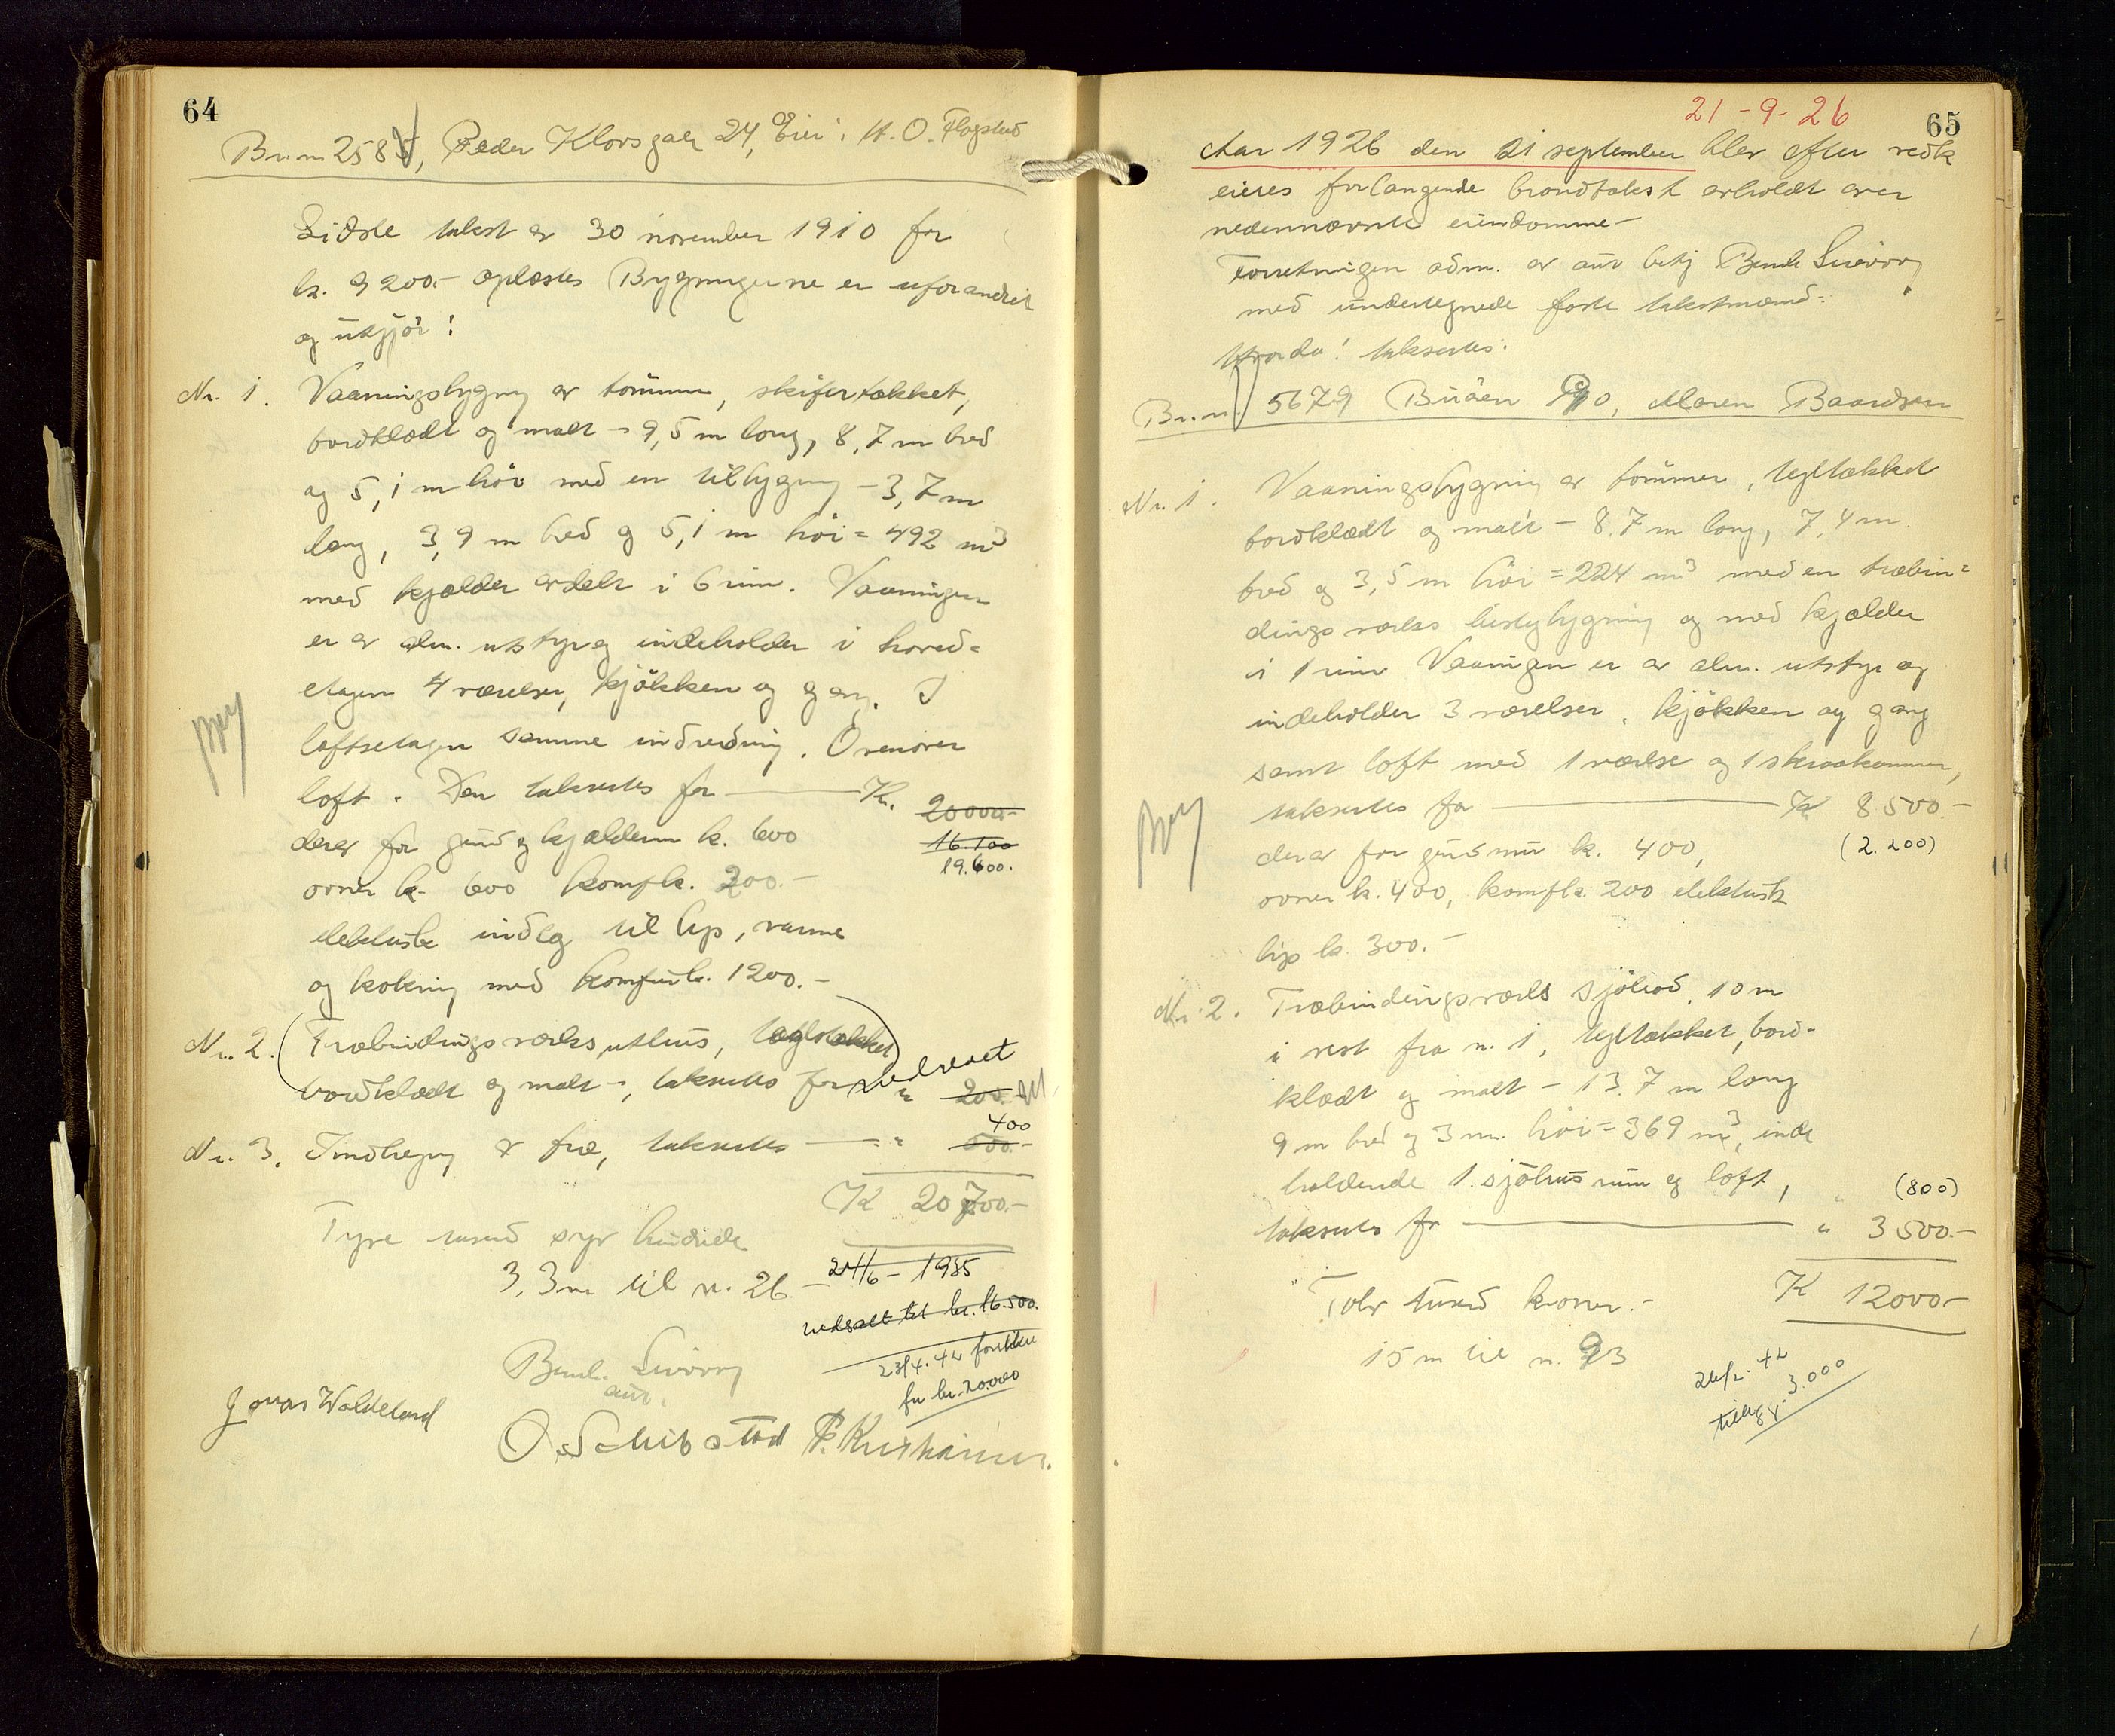 64
Br. nr 2585, Peder Klovsgate 24, Eier: H. O. Flogstad
Sidste takst er 30 november 1910 for
kr. 9200.- oplæstes Bygningerne er uforandret
og utgjør:
Nr. 1. Vaaningsbygng av tømmer, skifertækket,
bordklædt og malt - 9,5 m lang, 8,7 m bred
og 5,1 m høi med en tilbygng - 3,7 m
lang, 3,9 m bred og 5,1 m høi = 492 m3
med kjælder avdelt i 6 rum. Vaaningen
er av alm. utstyr og indeholder i hoved=
etagen 4 værelser, kjøkken og gang. I
loftsetagen samme indredning. Ovenover
loft. Den takseres for — Kr. 20000.-
16.100
19.600.
derav for grund og kjælderm kr. 600
ovner kr. 600 komf kr. 200.-
elektrisk indlæg til lys, varme
og kokning med komfur kr. 1200.-
Nr. 2. (Træbindingsverks uthus, teglstækket)
bordklædt og malt -, takseres for " 200.-
nedrevet
Nr. 3. Indhegng av træ, takseres — " 500.-
400
Kr 20700.-
Tyve tusend syv hundrede
3,3 m til nr. 26 -
24/6 - 1935
nedsatt til kr. 16.500.
23/4. 42
for kr. 20.000
Bernh. Sivørg
aut.
Jonas Woldeland
O. Schibstad P. Kristiansen.
Brg
21-9-26
65
Aar 1926 den 21 september blev efter vedk
eieres forlangende brandtakst avholdt over
nedennævnte eiendomme -
Forretningen adm. av aut betj Bernh Sivørg
med undertegnede faste takstmænd:
Hvorda! takseres:
Br. nr. 5679 Buøen 90, Maren Baardsen
Nr. 1. Vaaningsbygning av tømmer, tegltækket
bordklædt og malt - 8.7 m lang, 7,4 m
bred og 3,5 m høi = 224 m3 med en træbin=
dingsverks bislagbygning og med kjælder
i 1 rum Vaaningen er av alm. utstyr og
indeholder 3 værelser, kjøkken og gang
samt loft med 1 værelse og 1 skraakammer,
takseres for — Kr 8500.-
(2.200)
derav for grundmur kr. 400,
ovner kr. 400, komf kr. 200 elektrisk
lys kr. 300.-
Brg
Nr. 2. Træbindingsverks sjøbod, 10 m
i vest fra nr. 1, tegltækket, bord-
klædt og malt - 13.7 m lang
9 m bred og 3 m. høi = 369 m3, inde
holdende 1. sjøhusrum og loft, " (800)
takseres for — " 3500.-
Kr 12000.-
Tolv tusend kroner.-
15 m til nr. 93
26/2. 42
tillegg. 3.000